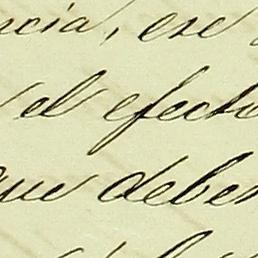 ncia, ese
el efectu
que deben